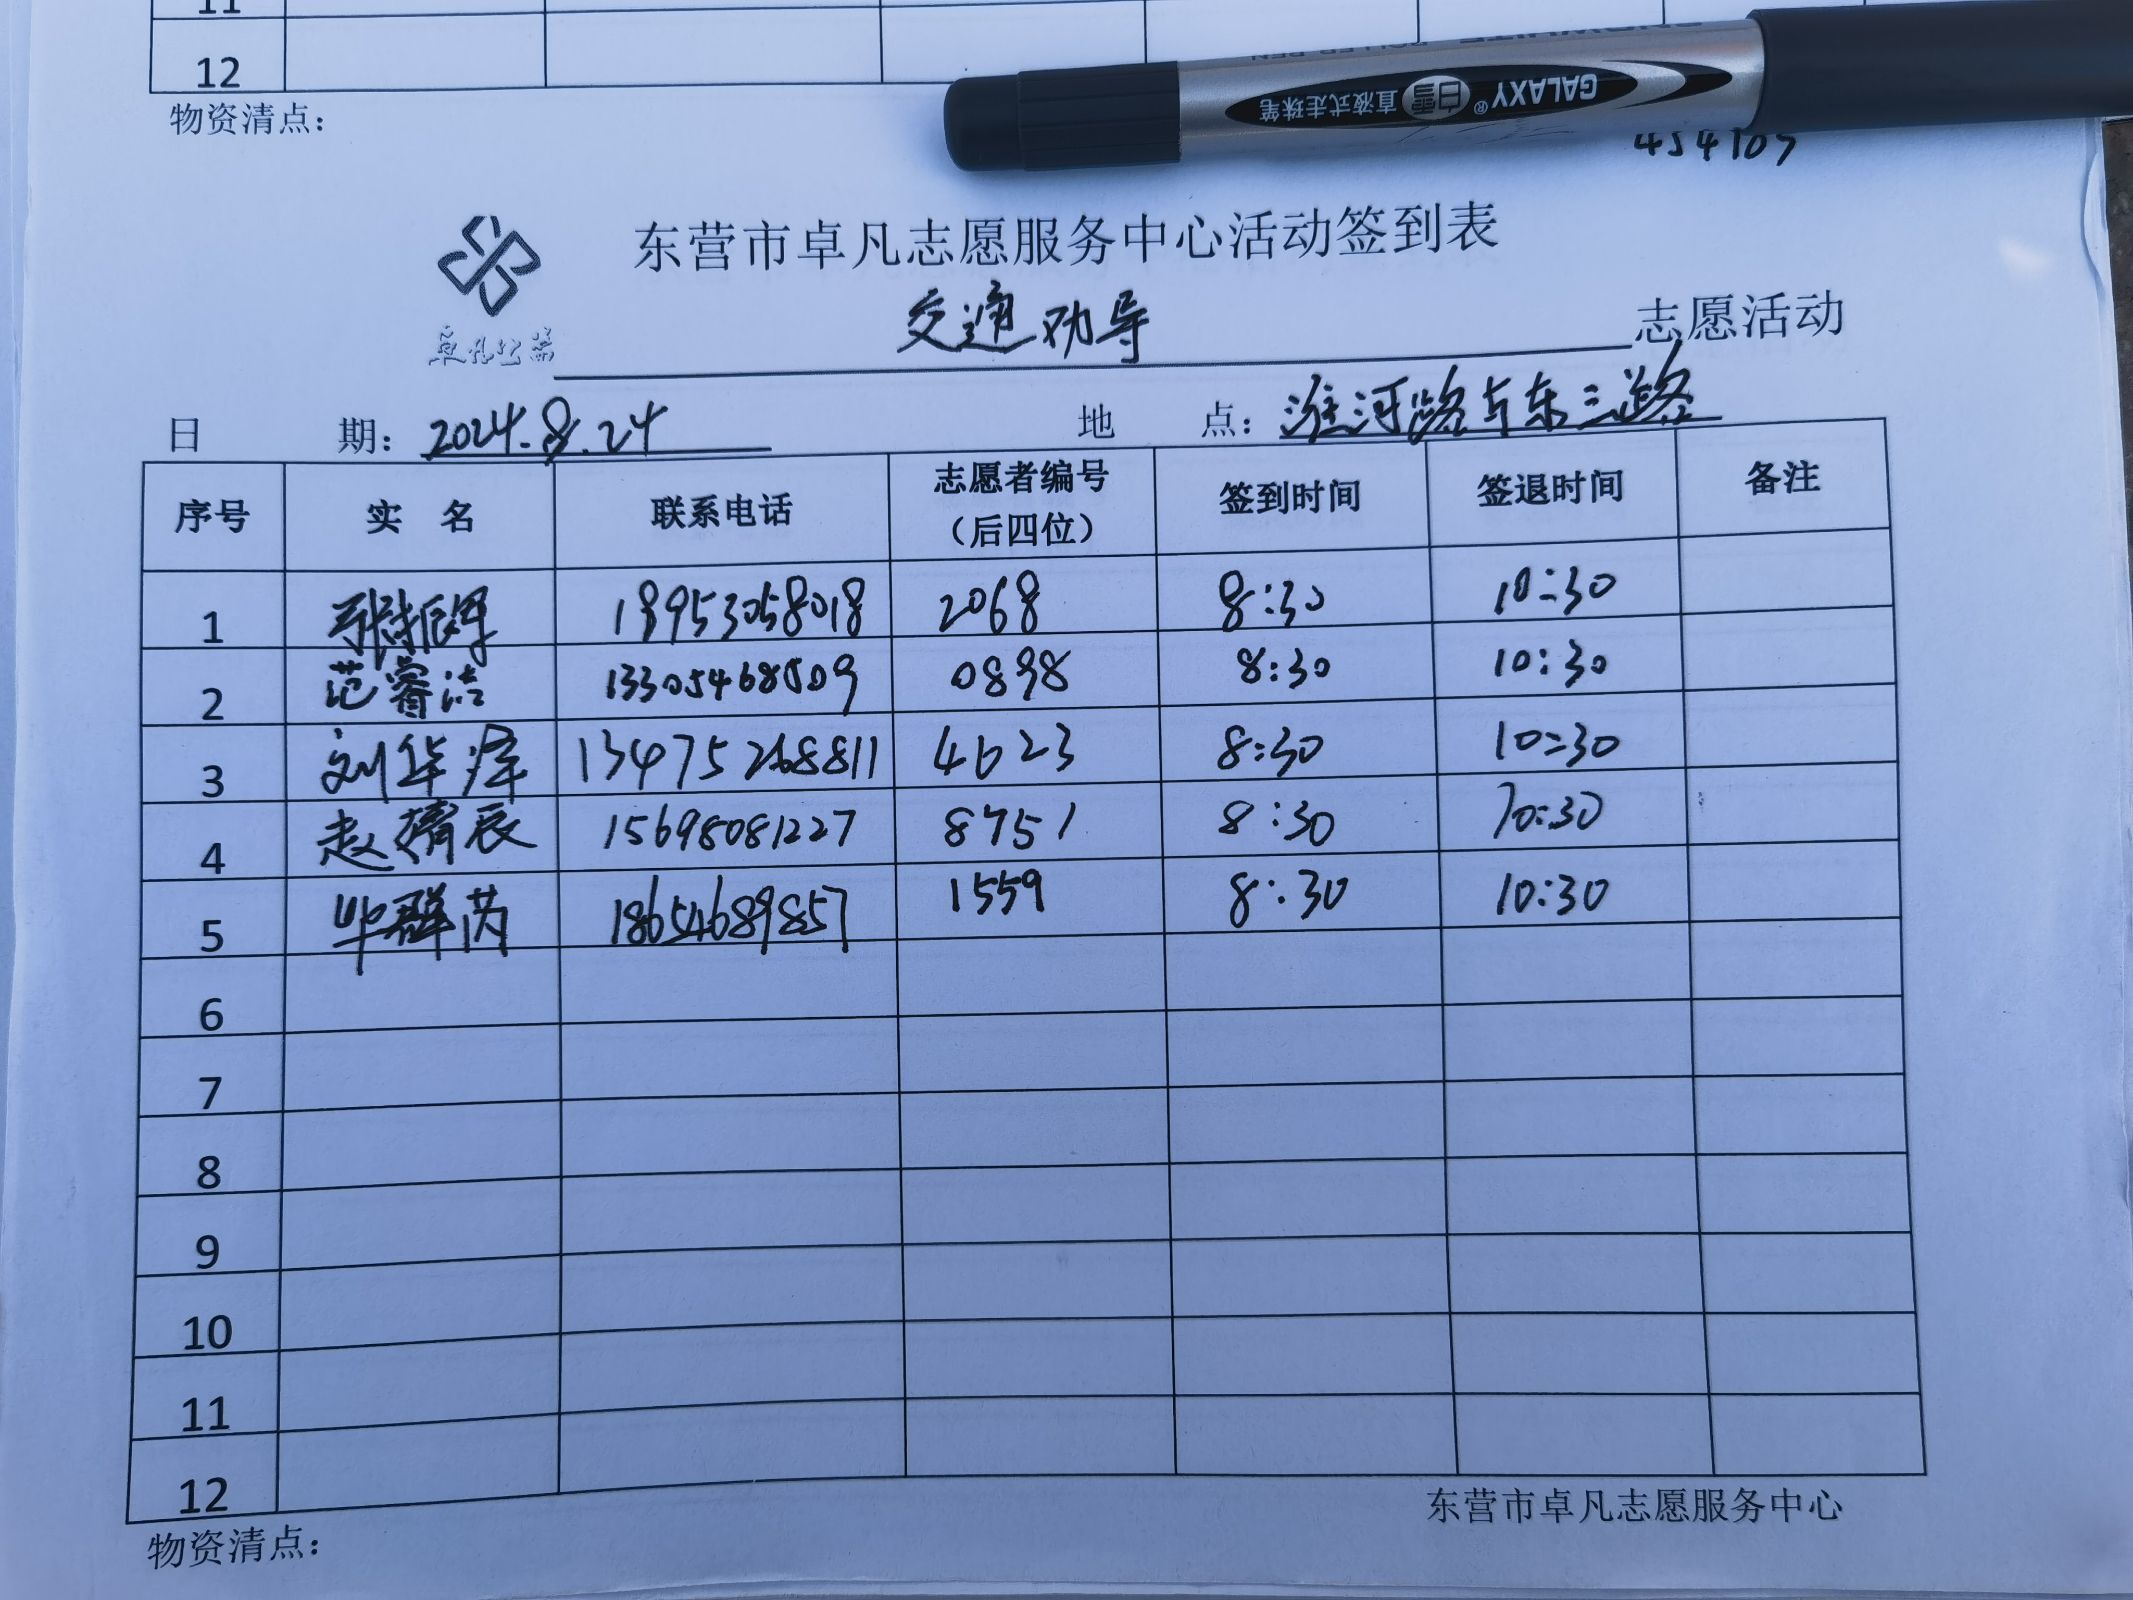 11
12
物资清点：
GALAXY® 白雪 直液式走珠笔
东营市卓凡志愿服务中心活动签到表
卓凡公益
交通劝导 志愿活动
日 期：2024.8.24 地 点：淮河路与东三路
序号 实 名 联系电话 志愿者编号（后四位） 签到时间 签退时间 备注
1 2068 8:30 10:30
2 范睿洁 13305468509 0898 8:30 10:30
3 刘华泽 13475268811 4623 8:30 10:30
4 赵 辰 15698081227 8751 8:30 10:30
5 毕群芮 18654689857 1559 8:30 10:30
6
7
8
9
10
11
12
东营市卓凡志愿服务中心
物资清点：